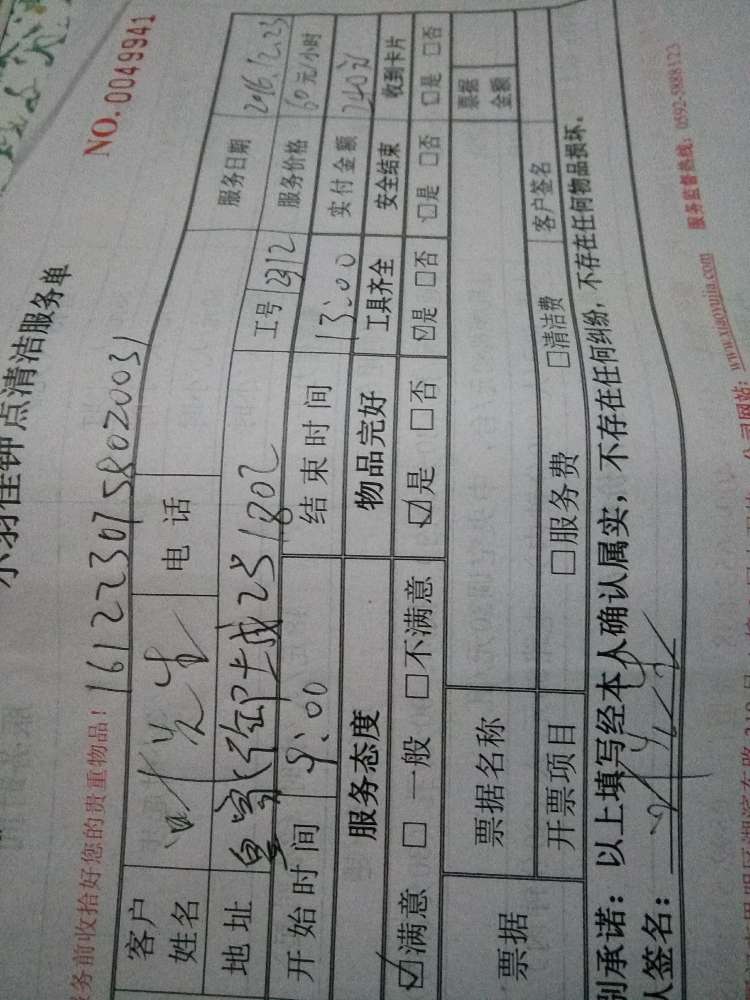 小羽佳钟点清洁服务单
NO. 0049941
务前收拾好您的贵重物品！ 161223075802003
客户姓名 叶先生 电话 服务日期 2016.12.23
地址 25 1802 工号 2312 服务价格 60元/小时
开始时间 9:00 结束时间 13:00 实付金额 240
服务态度 物品完好 工具齐全 安全结束 收到卡片
☑满意 □一般 □不满意 ☑是 □否 ☑是 □否 □是 □否 □是 □否
票据 票据名称 票据金额
开票项目 □服务费 □清洁费 客户签名
别承诺：以上填写经本人确认属实，不存在任何纠纷，不存在任何物品损坏。
人签名：
公司网站：www.xiaoyujia.com 服务监督热线：0592-5888123